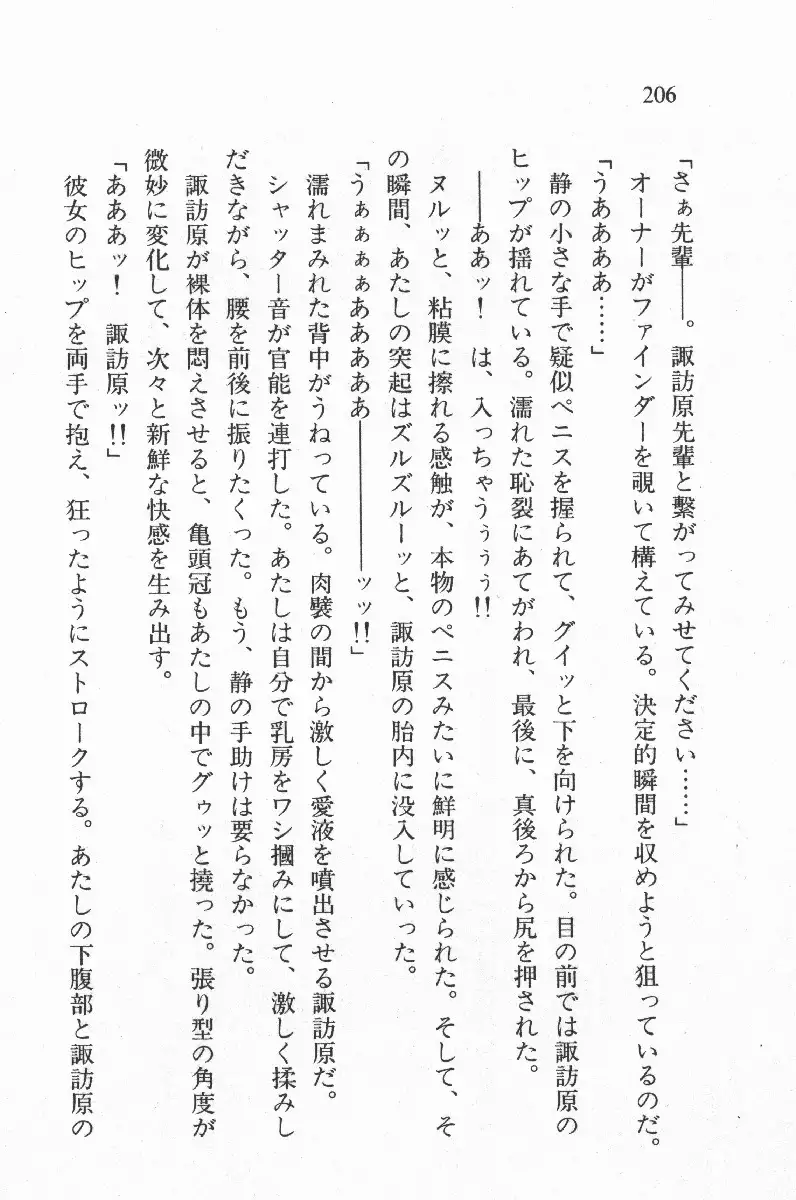 206
「さぁ先輩――。諏訪原先輩と繋がってみせてください……」
オーナーがファインダーを覗いて構えている。決定的瞬間を収めようと狙っているのだ。
「うああああ……」
静の小さな手で疑似ペニスを握られて、グイッと下を向けられた。目の前では諏訪原の
ヒップが揺れている。濡れた恥裂にあてがわれ、最後に、真後ろから尻を押された。
――ああッ！　は、入っちゃうぅぅぅ!!
ヌルッと、粘膜に擦れる感触が、本物のペニスみたいに鮮明に感じられた。そして、そ
の瞬間、あたしの突起はズルズルーッと、諏訪原の胎内に没入していった。
「うぁぁぁぁあああああ――――――ッッ!!」
濡れまみれた背中がうねっている。肉襞の間から激しく愛液を噴出させる諏訪原だ。
シャッター音が官能を連打した。あたしは自分で乳房をワシ摑みにして、激しく揉みし
だきながら、腰を前後に振りたくった。もう、静の手助けは要らなかった。
諏訪原が裸体を悶えさせると、亀頭冠もあたしの中でグゥッと撓った。張り型の角度が
微妙に変化して、次々と新鮮な快感を生み出す。
「あああッ！　諏訪原ッ!!」
彼女のヒップを両手で抱え、狂ったようにストロークする。あたしの下腹部と諏訪原の